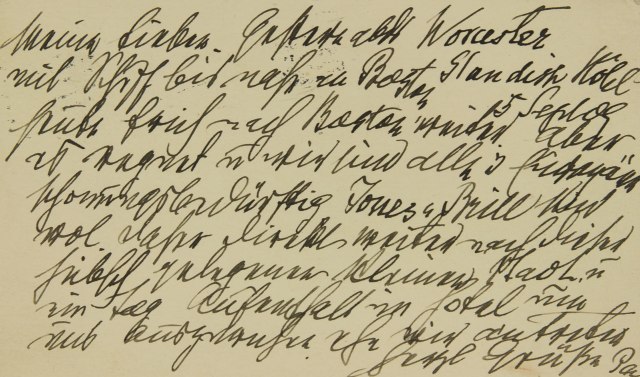 Meine Lieben. Gestern abds Worcester
mit Schiff bis nahe zu Boston Standish Hôtel
heute früh nach Boston weiter 5 Sept 09 aber
es regnet u wir sind alle 3
schonungsbedürftig Jones u Brill sind
wol. Daher direkt weiter nach dieser
hübsch gelegenen kleinen Stadt u
ein Tag Aufenthalt im Hotel um
uns auszuruhen ehe wir antreten
Herzl Grüße Pa